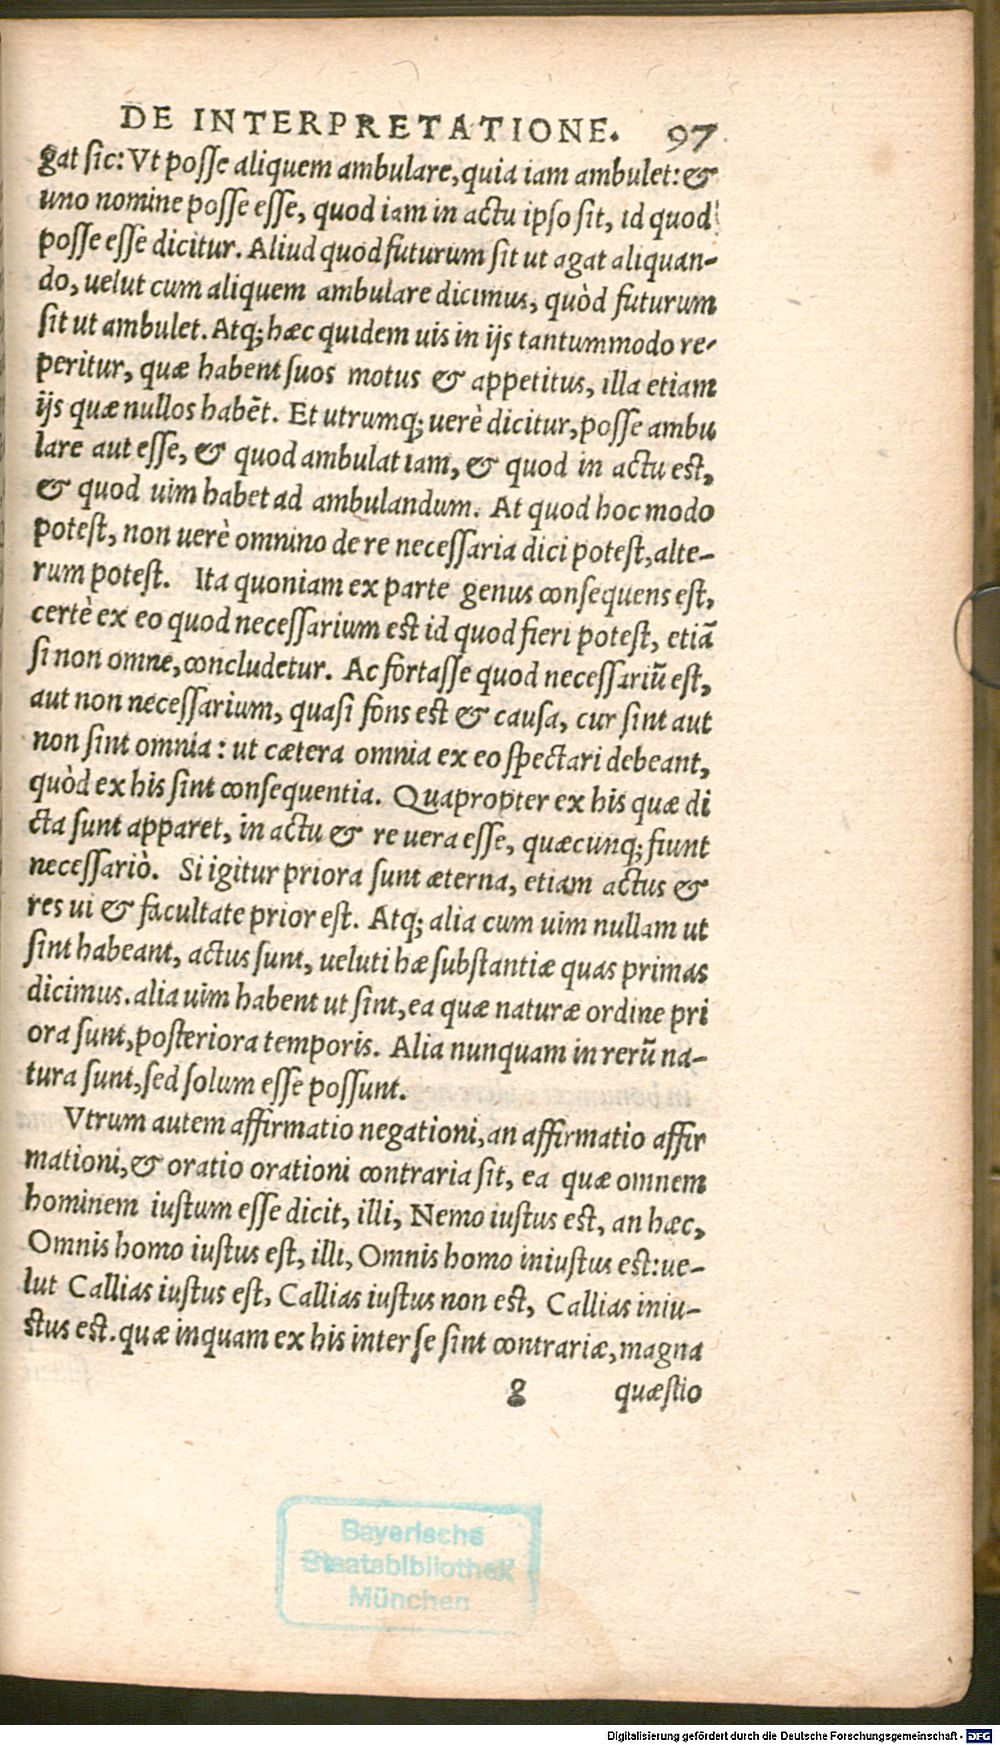 DE INTERPRETATIONE. 97
gat sic: Vt posse aliquem ambulare, quia iam ambulet: &
uno nomine posse esse, quod iam in actu ipso sit, id quod
posse esse dicitur. Aliud quod futurum sit ut agat aliquan-
do, uelut cum aliquem ambulare dicimus, quòd futurum
sit ut ambulet. Atq; hæc quidem uis in ijs tantummodo re-
peritur, quæ habent suos motus & appetitus, illa etiam
ijs quæ nullos habēt. Et utrumq; uerè dicitur, posse ambu
lare aut esse, & quod ambulat iam, & quod in actu est,
& quod uim habet ad ambulandum. At quod hoc modo
potest, non uerè omnino de re necessaria dici potest, alte-
rum potest. Ita quoniam ex parte genus consequens est,
certè ex eo quod necessarium est id quod fieri potest, etiā
si non omne, concludetur. Ac fortasse quod necessariū est,
aut non necessarium, quasi fons est & causa, cur sint aut
non sint omnia: ut cætera omnia ex eo spectari debeant,
quòd ex his sint consequentia. Quapropter ex his quæ di
cta sunt apparet, in actu & re uera esse, quæcunq; fiunt
necessariò. Si igitur priora sunt æterna, etiam actus &
res ui & facultate prior est. Atq; alia cum uim nullam ut
sint habeant, actus sunt, ueluti hæ substantiæ quas primas
dicimus. alia uim habent ut sint, ea quæ naturæ ordine pri
ora sunt, posteriora temporis. Alia nunquam in rerū na-
tura sunt, sed solum esse possunt.
Vtrum autem affirmatio negationi, an affirmatio affir
mationi, & oratio orationi contraria sit, ea quæ omnem
hominem iustum esse dicit, illi, Nemo iustus est, an hæc,
Omnis homo iustus est, illi, Omnis homo iniustus est: ue-
lut Callias iustus est, Callias iustus non est, Callias iniu-
stus est. quæ inquam ex his inter se sint contrariæ, magna
g quæstio
Bayerische
Staatsbibliothek
München
Digitalisierung gefördert durch die Deutsche Forschungsgemeinschaft - DFG